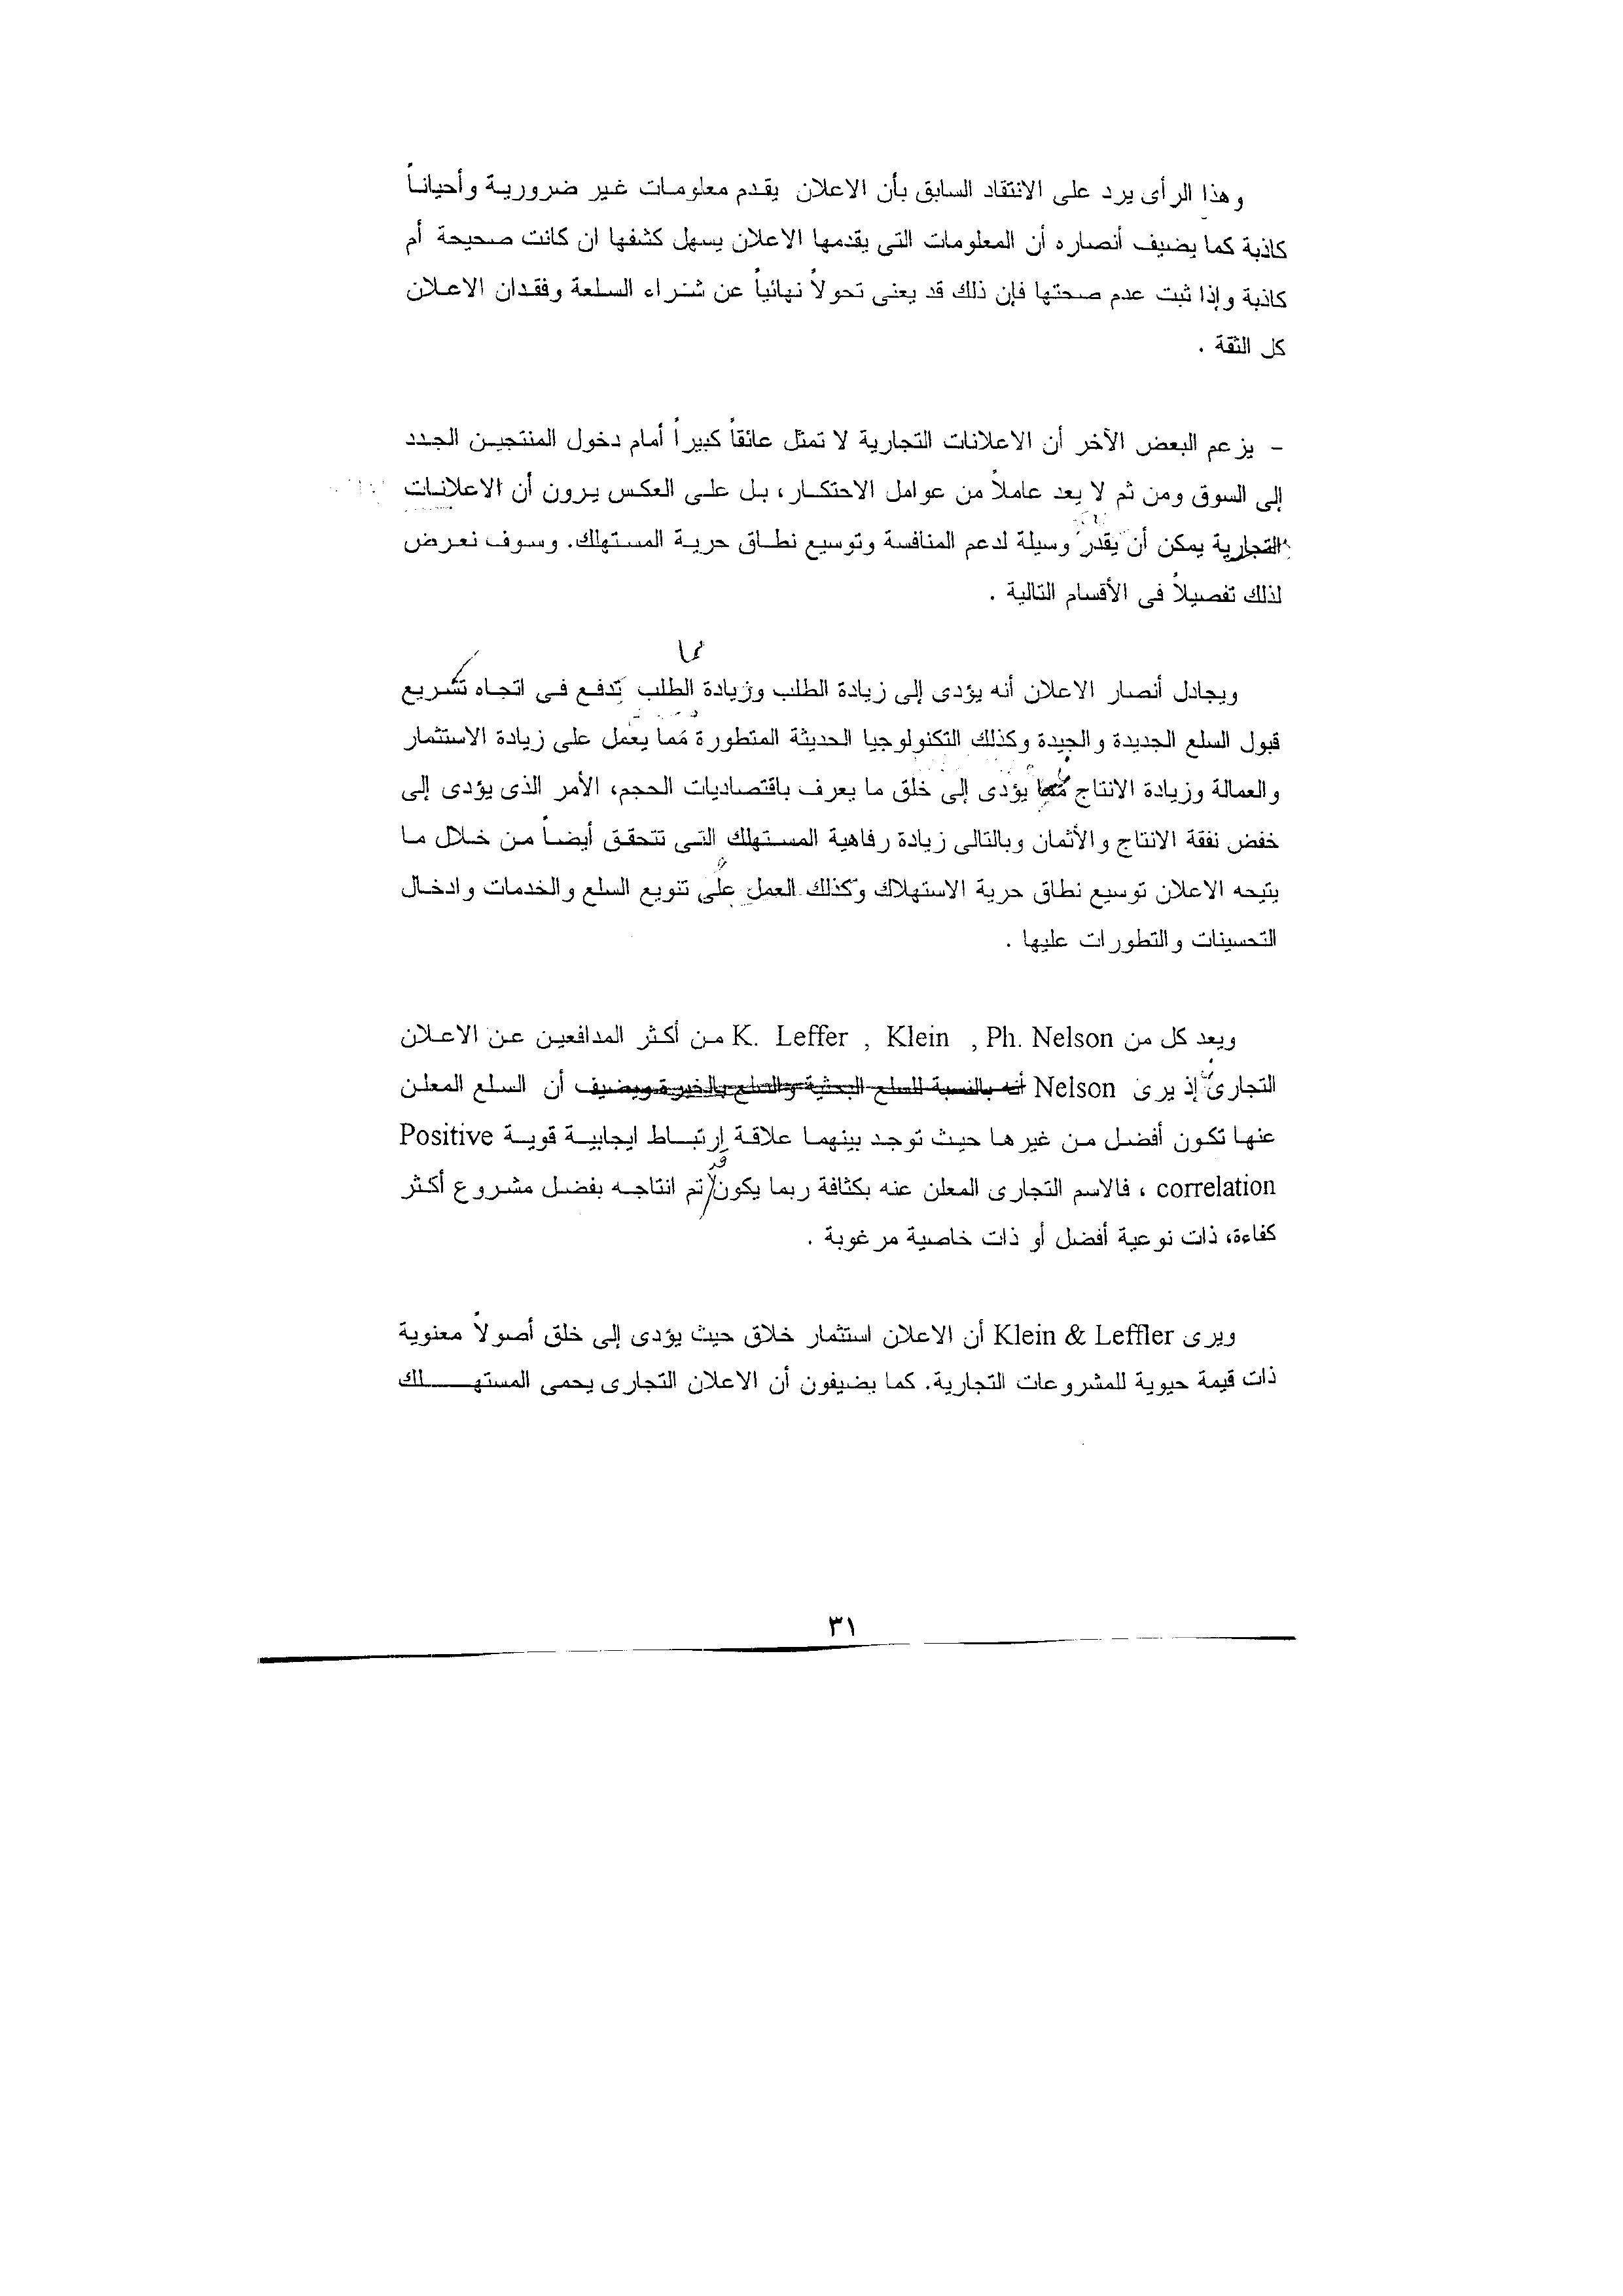 وهذا الرأى يرد على الانتقاد السابق بأن الاعلان يقدم معلومات غير ضرورية وأحياناً
كاذبة كما يضيف أنصاره أن المعلومات التى يقدمها الاعلان يسهل كشفها ان كانت صحيحة أم
كاذبة وإذا ثبت عدم صحتها فإن ذلك قد يعنى تحولاً نهائياً عن شراء السلعة وفقدان الاعلان
كل الثقة .
- يزعم البعض الآخر أن الاعلانات التجارية لا تمثل عائقاً كبيراً أمام دخول المنتجين الجدد
إلى السوق ومن ثم لا يعد عاملاً من عوامل الاحتكار، بل على العكس يرون أن الاعلانات
التجارية يمكن أن يقدر وسيلة لدعم المنافسة وتوسيع نطاق حرية المستهلك. وسوف نعرض
لذلك تفصيلاً فى الأقسام التالية .
ويجادل أنصار الاعلان أنه يؤدى إلى زيادة الطلب وزيادة الطلب تدفع فى اتجاه تشريع
قبول السلع الجديدة والجيدة وكذلك التكنولوجيا الحديثة المتطورة مما يعمل على زيادة الاستثمار
والعمالة وزيادة الانتاج مما يؤدى إلى خلق ما يعرف باقتصاديات الحجم، الأمر الذى يؤدى إلى
خفض نفقة الانتاج والأثمان وبالتالى زيادة رفاهية المستهلك التى تتحقق أيضاً من خلال ما
يتيحه الاعلان توسيع نطاق حرية الاستهلاك وكذلك العمل على تنويع السلع والخدمات وادخال
التحسينات والتطورات عليها .
ويعد كل من K. Leffer , Klein , Ph. Nelson من أكثر المدافعين عن الاعلان
التجارى إذ يرى Nelson أنه بالنسبة للسلع البحثية والسلع بالخبرة ويضيف أن السلع المعلن
عنها تكون أفضل من غيرها حيث توجد بينهما علاقة إرتباط ايجابية قوية Positive
correlation ، فالاسم التجارى المعلن عنه بكثافة ربما يكون قد تم انتاجه بفضل مشروع أكثر
كفاءة، ذات نوعية أفضل أو ذات خاصية مرغوبة .
ويرى Klein & Leffler أن الاعلان استثمار خلاق حيث يؤدى إلى خلق أصولاً معنوية
ذات قيمة حيوية للمشروعات التجارية. كما يضيفون أن الاعلان التجارى يحمى المستهلك
٣١